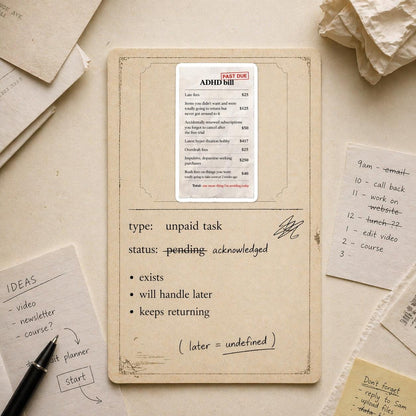 PAST DUE
ADHD bill
Late fees $25
Items you didn't want and were
totally going to return but $125
never got around to it
Accidentally renewed subscriptions
you forgot to cancel after $50
the free trial
Latest hyper-fixation hobby $417
Overdraft fees $25
Impulsive, dopamine-seeking
purchases $250
Rush fees on things you want $40
Total: one more thing I'm avoiding today
type: unpaid task
status: pending acknowledged
• exists
• will handle later
• keeps returning
( later = undefined )
IDEAS
- video
- newsletter
- course?
edit planner
start
9am - email
10 - call back
11 - work on
website
12 - lunch 22
1 - edit video
2 - course
3 -
Don't forget
- reply to Sam
- upload files